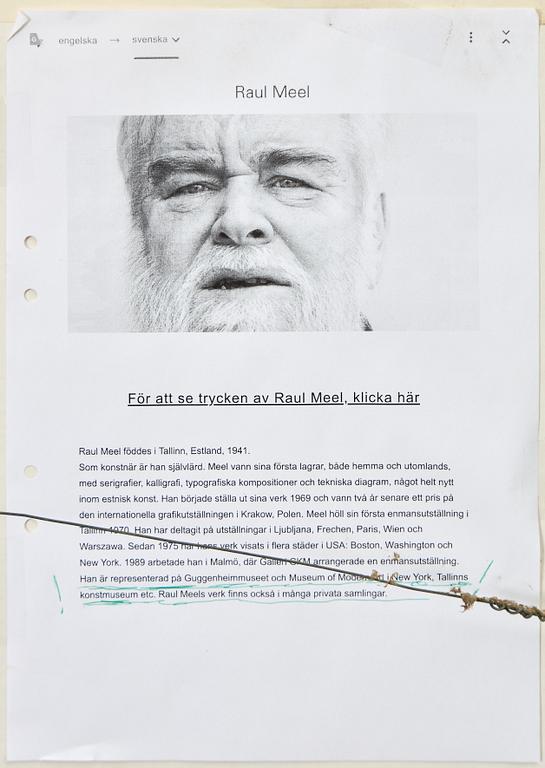 engelska → svenska
Raul Meel
För att se trycken av Raul Meel, klicka här
Raul Meel föddes i Tallinn, Estland, 1941.
Som konstnär är han självlärd. Meel vann sina första lagrar, både hemma och utomlands,
med serigrafier, kalligrafi, typografiska kompositioner och tekniska diagram, något helt nytt
inom estnisk konst. Han började ställa ut sina verk 1969 och vann två år senare ett pris på
den internationella grafikutställningen i Krakow, Polen. Meel höll sin första enmansutställning i
Tallinn 1970. Han har deltagit på utställningar i Ljubljana, Frechen, Paris, Wien och
Warszawa. Sedan 1975 har hans verk visats i flera städer i USA: Boston, Washington och
New York. 1989 arbetade han i Malmö, där Galleri GKM arrangerade en enmansutställning.
Han är representerad på Guggenheimmuseet och Museum of Modern Art i New York, Tallinns
konstmuseum etc. Raul Meels verk finns också i många privata samlingar.